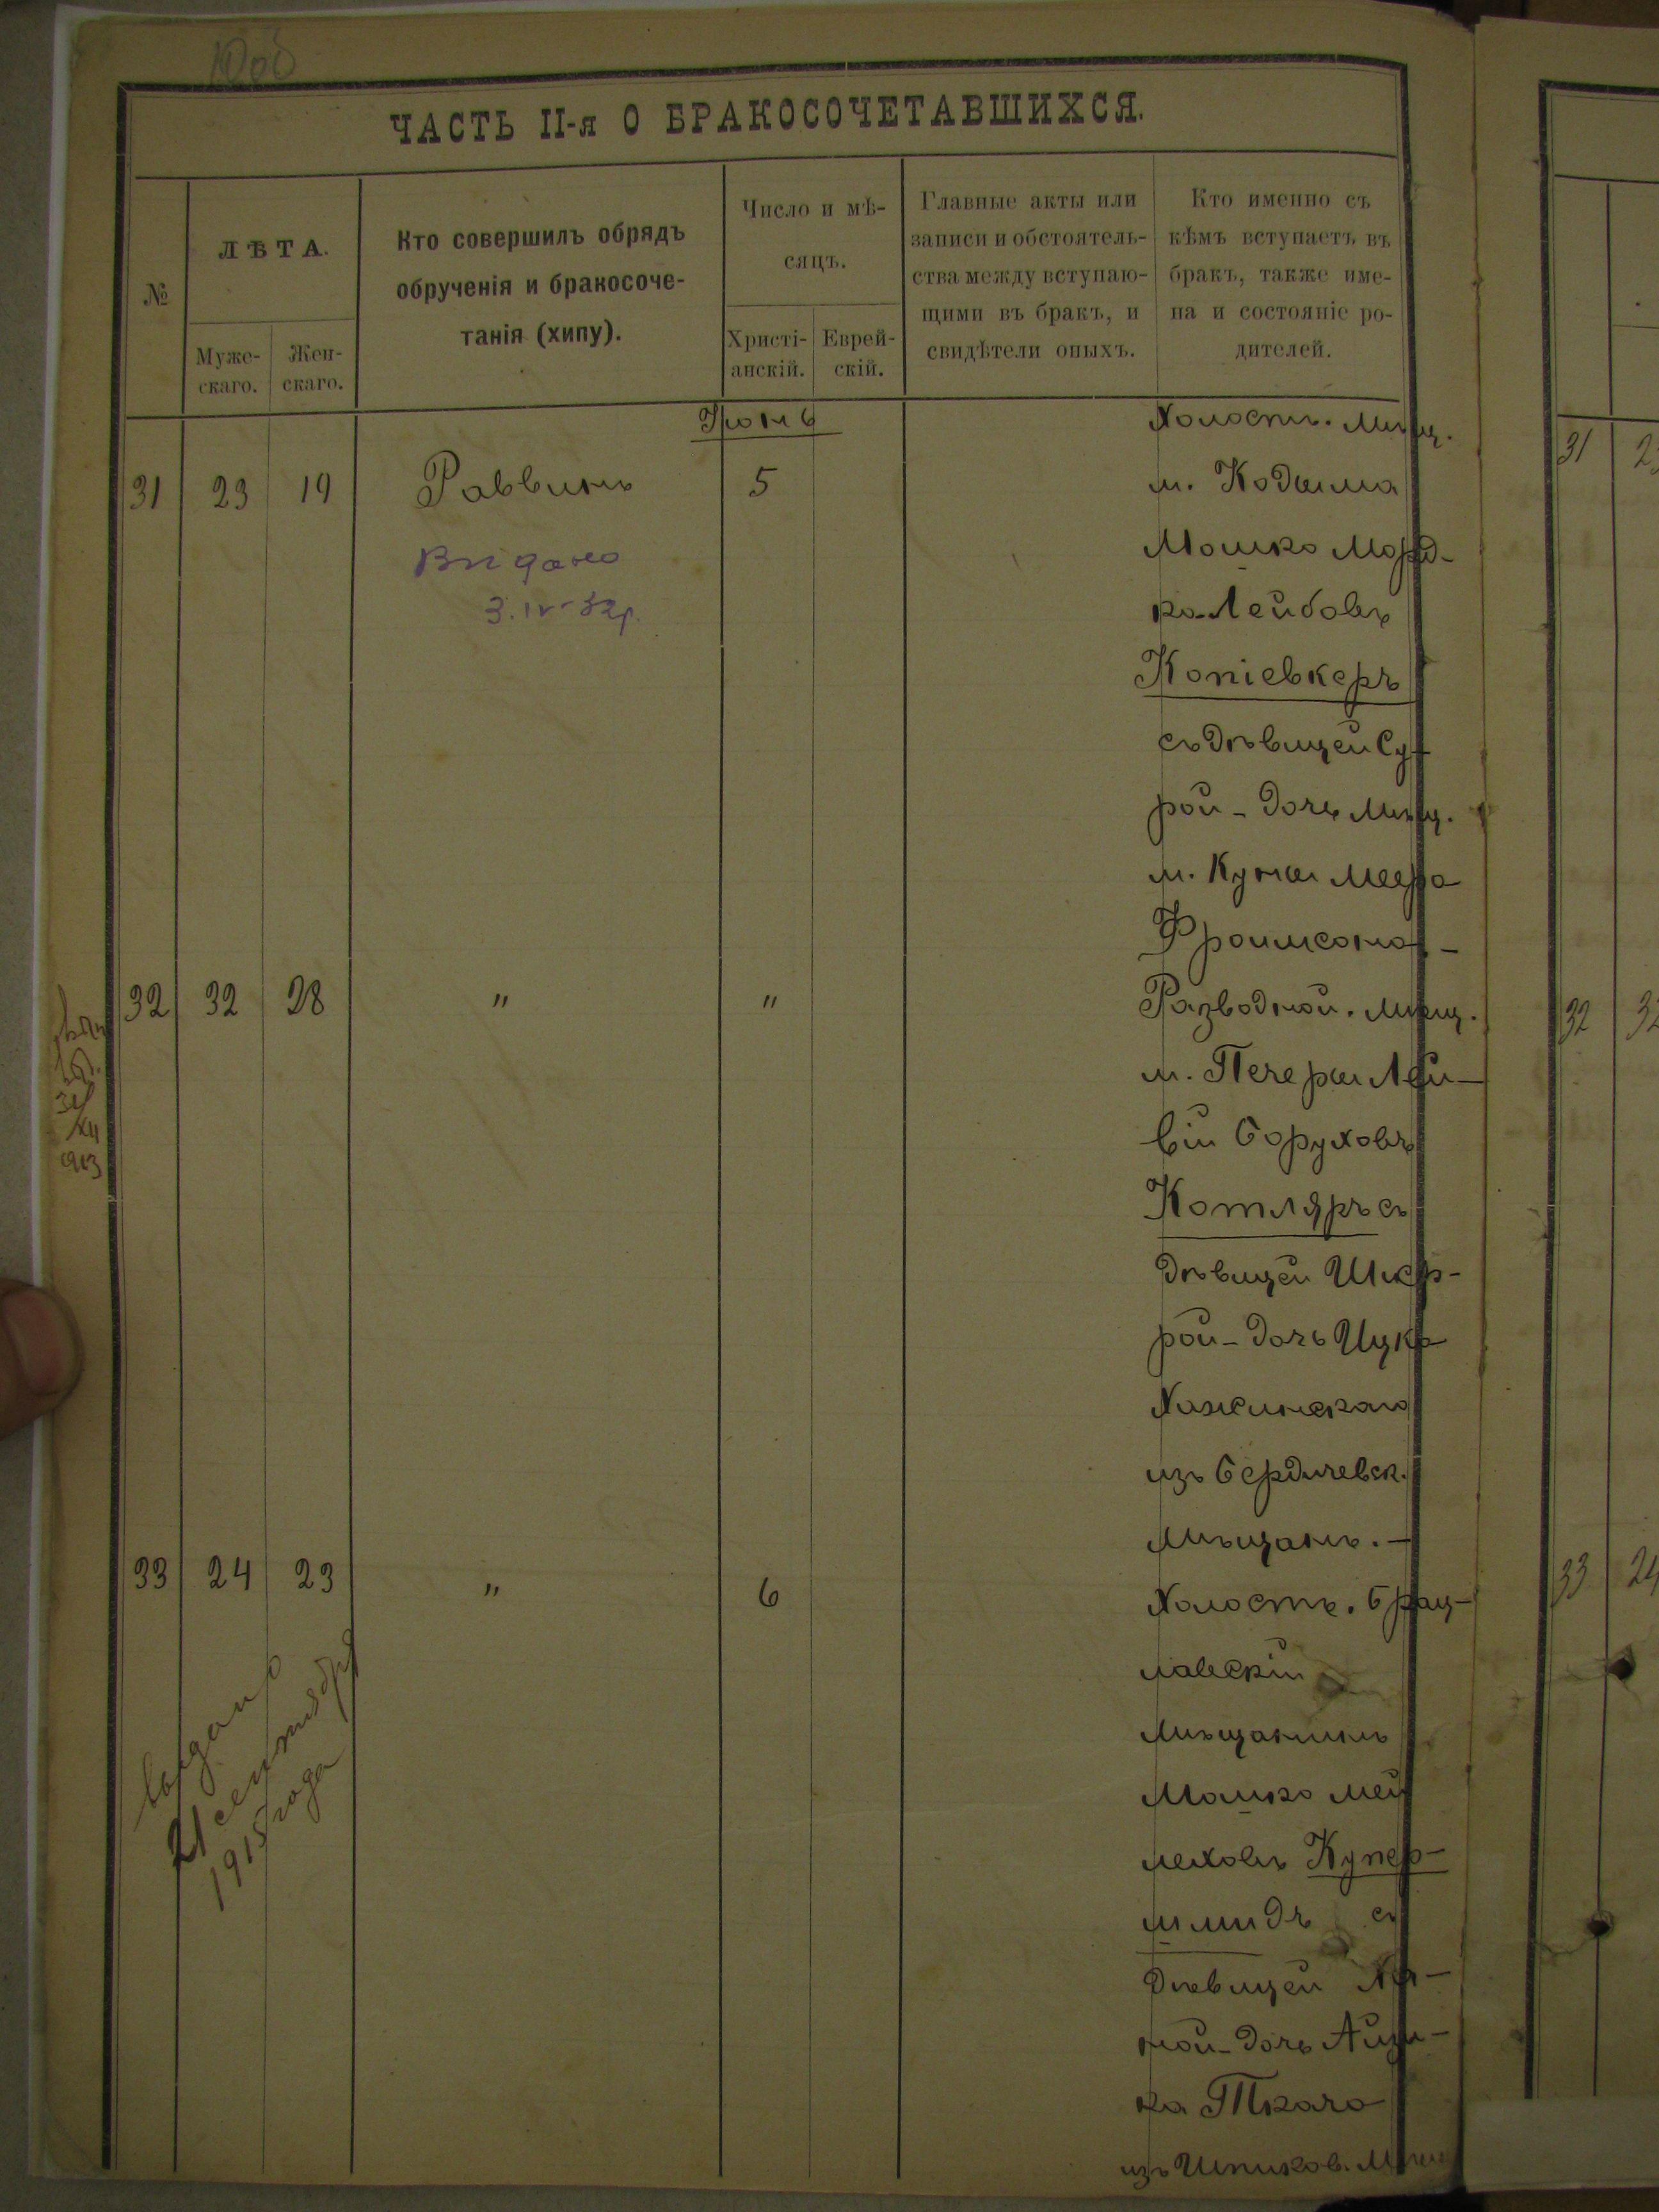 ЧАСТЬ II-я О БРАКОСОЧЕТАВШИХСЯ.
№
ЛѢТА.
Муже-
скаго.
Жен-
скаго.
Кто совершилъ обрядъ
обрученія и бракосоче-
танія (хипу).
Число и мѣ-
сяцъ.
Христі-
анскій.
Еврей-
скій.
Главные акты или
записи и обстоятель-
ства между вступаю-
щими въ бракъ, и
свидѣтели оныхъ.
Кто именно съ
кѣмъ вступаетъ въ
бракъ, также име-
на и состояніе ро-
дителей.
31 23 19 Раввинъ 5
Видано
3.IV-32р.
Холостъ. Мѣщ.
м. Кодыма
Мошко Морд-
ко-Лейбовъ
Копіевкеръ
съ дѣвицей Су-
рой - дочь Мѣщ.
м. Куны Меера
Фроимсона -
32 32 28 " "
Разводной. Мѣщ.
м. Печеры Лей-
вій Боруховъ
Котляръ съ
дѣвицей
рой - дочь Ицко
Хажинскаго
изъ Бердичевск.
Мѣщанъ. -
33 24 23 " 6
выдано
21 сентября
1915 года
Холостъ. Брац-
лавскій
Мѣщанинъ
Мошко Мей
леховъ Купер-
шмидъ съ
дѣвицей Ха-
ной - дочь Айзи-
ка Ткача
изъ Шпиков.
31
32
33 24